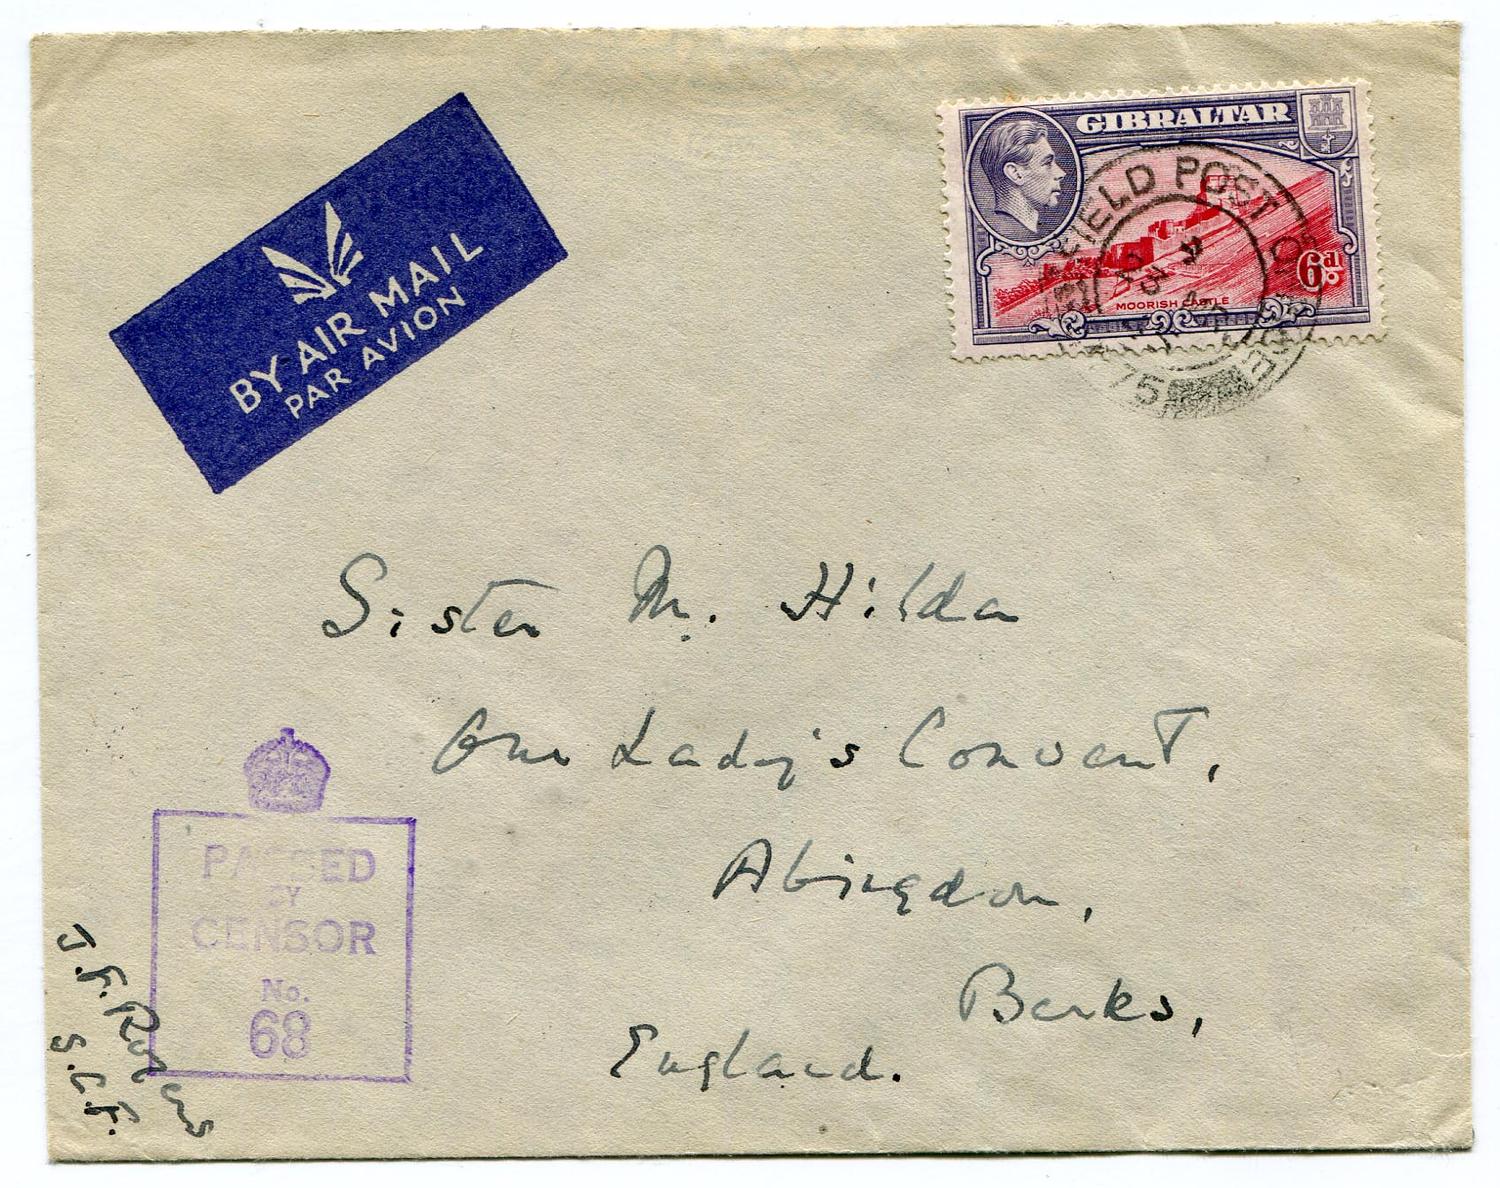 BY AIR MAIL
PAR AVION
GIBRALTAR
MOORISH CASTLE
6d
FIELD POST OFFICE
75
Sister M. Hilda
Our Lady's Convent,
Abingdon,
Berks,
England.
PASSED
BY
CENSOR
No.
68
J.F.
S.C.F.